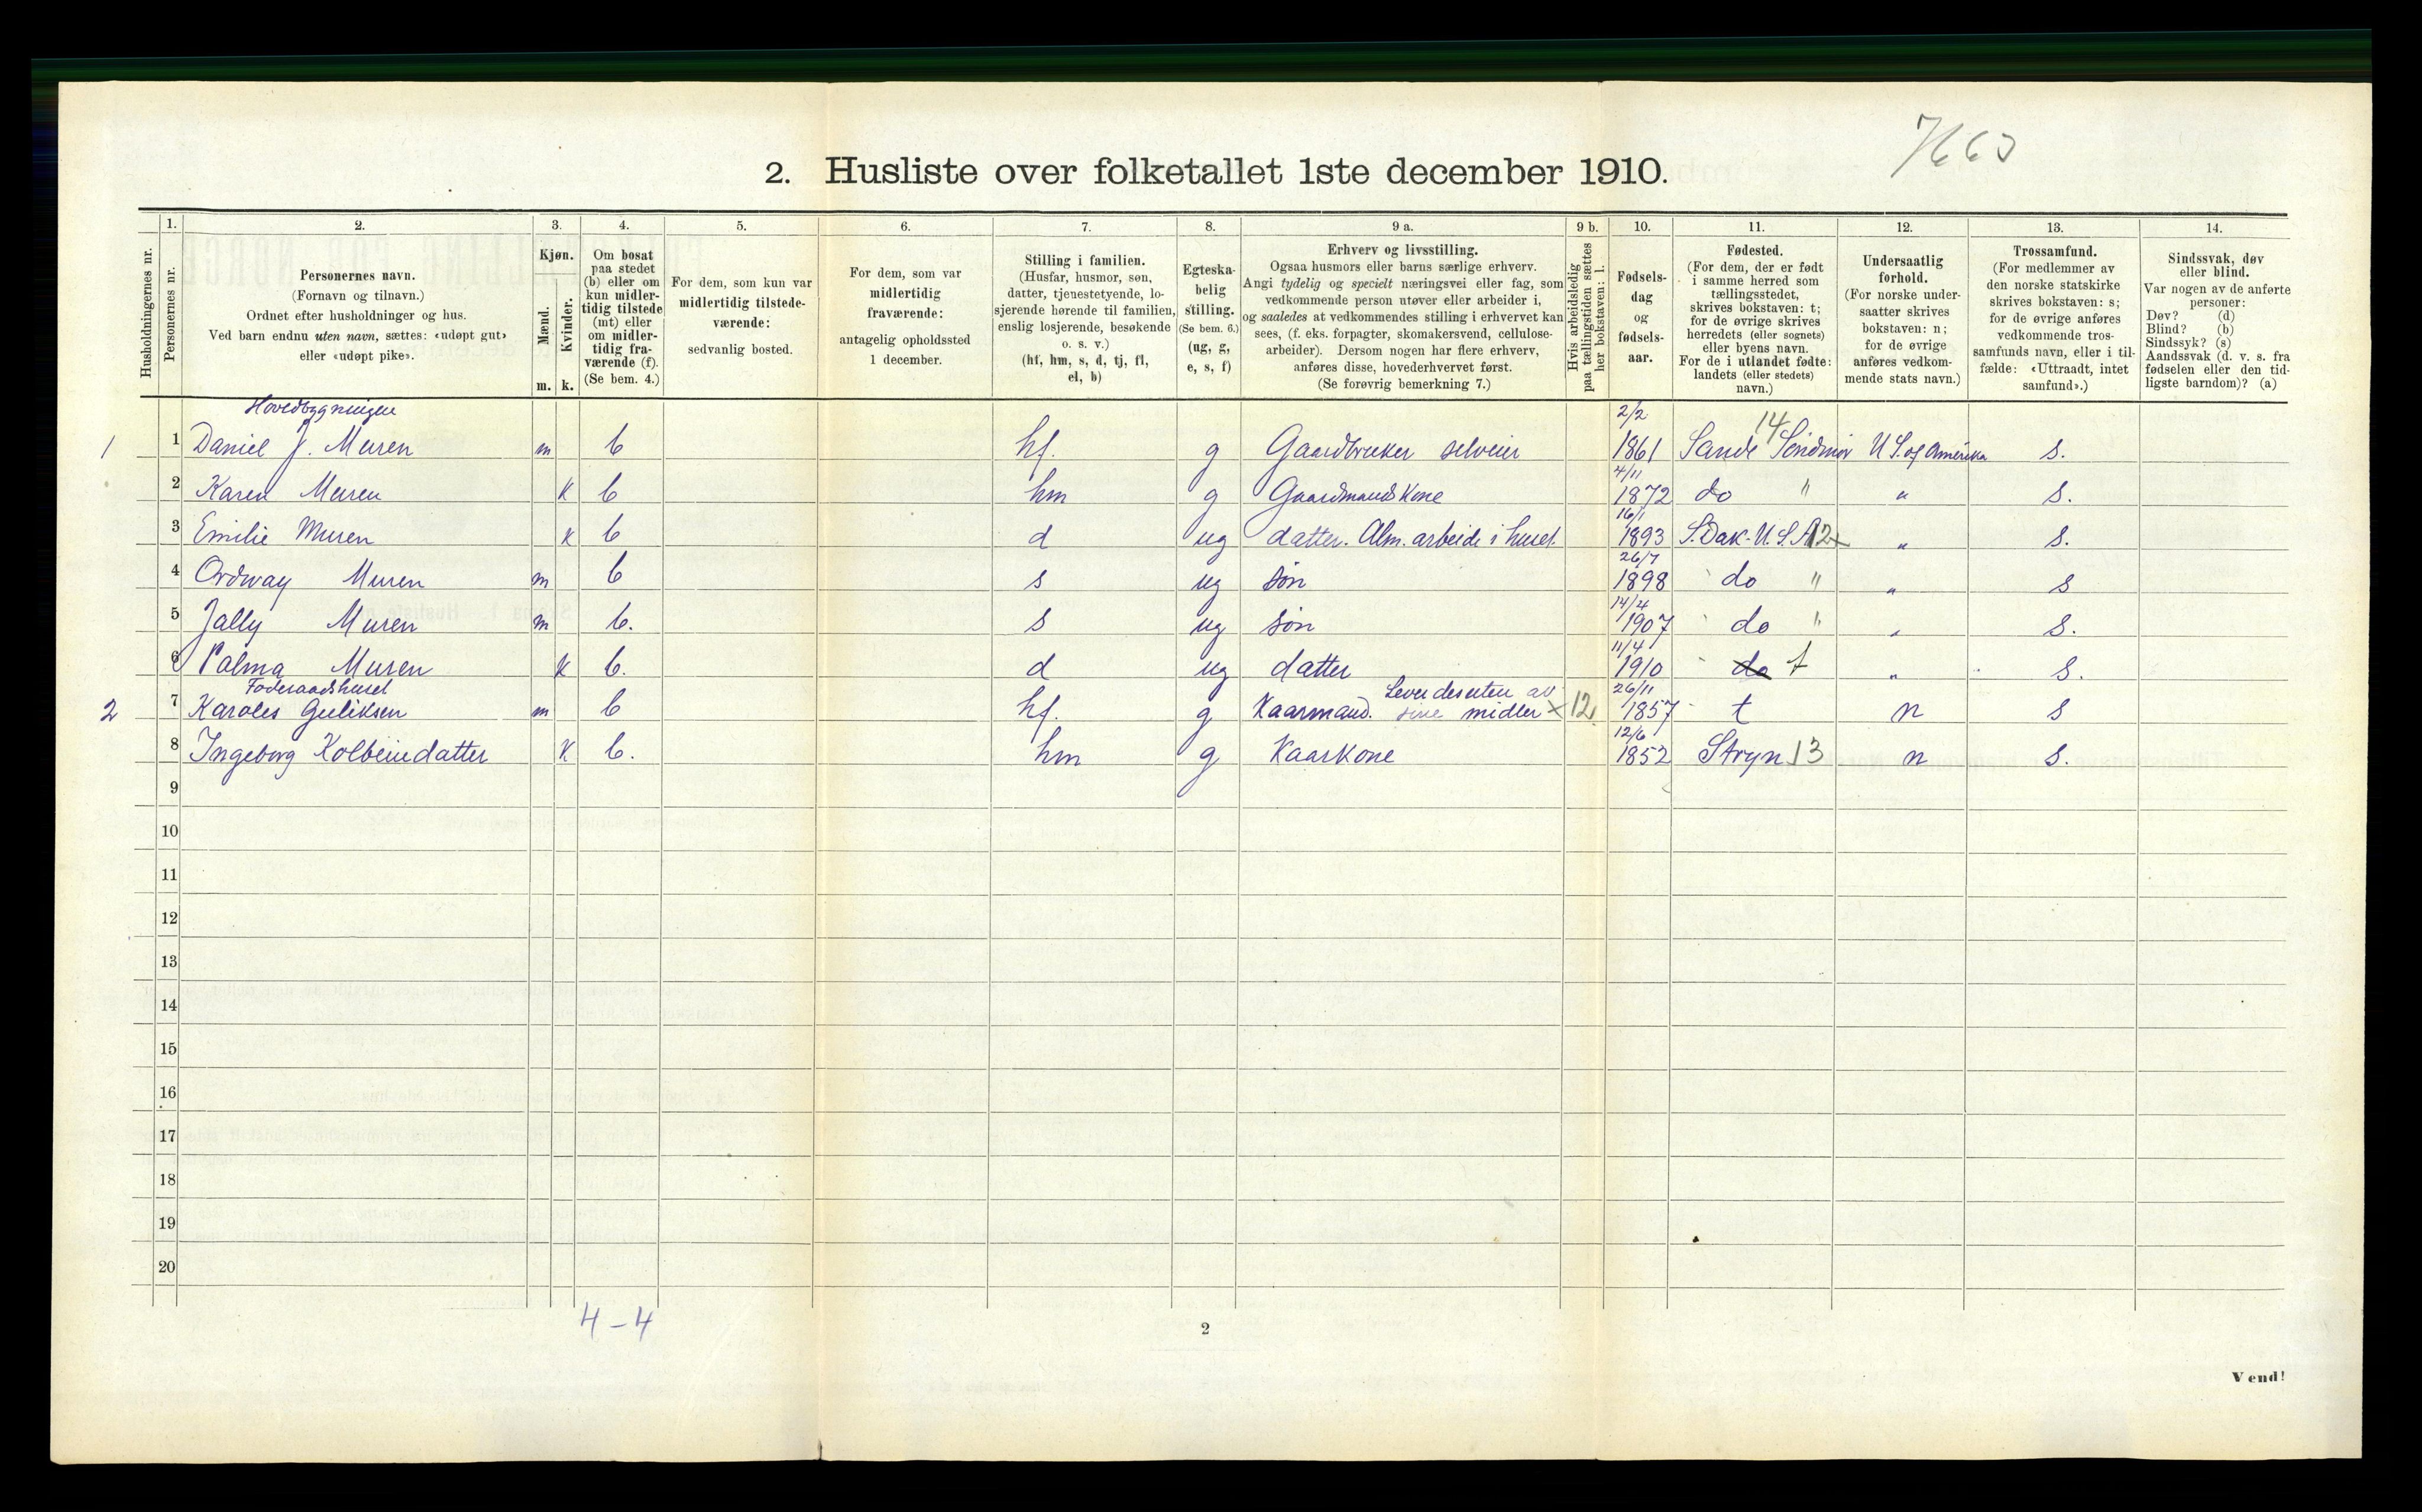 7663
2. Husliste over folketallet 1ste december 1910.
Husholdningernes nr.
1.
Personernes nr.
2.
Personernes navn.
(Fornavn og tilnavn.)
Ordnet efter husholdninger og hus.
Ved barn endnu uten navn, sættes: «udøpt gut»
eller «udøpt pike».
3.
Kjøn.
Mænd.
Kvinder.
m. k.
4.
Om bosat
paa stedet
(b) eller om
kun midler-
tidig tilstede
(mt) eller
om midler-
tidig fra-
værende (f).
(Se bem. 4.)
5.
For dem, som kun var
midlertidig tilstede-
værende:
sedvanlig bosted.
6.
For dem, som var
midlertidig
fraværende:
antagelig opholdssted
1 december.
7.
Stilling i familien.
(Husfar, husmor, søn,
datter, tjenestetyende, lo-
sjerende hørende til familien,
enslig losjerende, besøkende
o. s. v.)
(hf, hm, s, d, tj, fl,
el, b)
8.
Egteska-
belig
stilling.
(Se bem. 6.)
(ug, g,
e, s, f)
9 a.
Erhverv og livsstilling.
Ogsaa husmors eller barns særlige erhverv.
Angi tydelig og specielt næringsvei eller fag, som
vedkommende person utøver eller arbeider i,
og saaledes at vedkommendes stilling i erhvervet kan
sees, (f. eks. forpagter, skomakersvend, cellulose-
arbeider). Dersom nogen har flere erhverv,
anføres disse, hovederhvervet først.
(Se forøvrig bemerkning 7.)
9 b.
Hvis arbeidsledig
paa tællingstiden sættes
her bokstaven: l.
10.
Fødsels-
dag
og
fødsels-
aar.
11.
Fødested.
(For dem, der er født
i samme herred som
tællingsstedet,
skrives bokstaven: t;
for de øvrige skrives
herredets (eller sognets)
eller byens navn.
For de i utlandet fødte:
landets (eller stedets)
navn.)
12.
Undersaatlig
forhold.
(For norske under-
saatter skrives
bokstaven: n;
for de øvrige
anføres vedkom-
mende stats navn.)
13.
Trossamfund.
(For medlemmer av
den norske statskirke
skrives bokstaven: s;
for de øvrige anføres
vedkommende tros-
samfunds navn, eller i til-
fælde: «Uttraadt, intet
samfund».)
14.
Sindssvak, døv
eller blind.
Var nogen av de anførte
personer:
Døv? (d)
Blind? (b)
Sindssyk? (s)
Aandssvak (d. v. s. fra
fødselen eller den tid-
ligste barndom)? (a)
Hovedbygningen 2/2 14
1 1 Daniel J. Muren m b hf. g Gaardbruker selveier 1861 Sande Söndmör U S. of Amerika s.
4/11
2 Karen Muren k b hm g Gaardmands Kone 1872 do " " s.
16/1
3 Emilie Muren k b d ug datter. Alm. arbeide i huset. 1893 S. Dak. U. S. A 12 x " s.
26/7
4 Ordway Muren m b s ug søn 1898 do " " s
14/4
5 Jally Muren m b. s ug søn 1907 do " " s.
11/4
6 Palma Muren k b. d ug datter 1910 do t " s.
Føderaadshuset Lever desuten av 26/11
2 7 Karoles Guliksen m b hf. g Kaarmand. sine midler x 12 1857 t n s
12/6
8 Ingeborg Kolbeinsdatter k b. hm g Kaarkone 1852 Stryn 13 n s.
9
10
11
12
13
14
15
16
17
18
19
20
4 - 4
2
Vend!